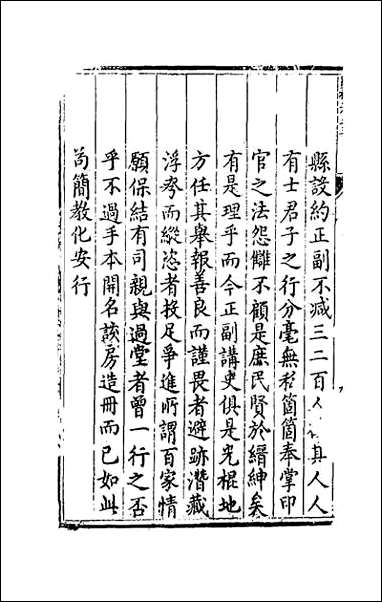 縣設約正副不减三二百人 其人人
有士君子之行分毫無私箇箇奉掌印
官之法怨讎不顧是庶民賢於縉紳矣
有是理乎而今正副講史俱是光棍地
方任其舉報善良而謹畏者避跡潛藏
浮夸而縱恣者投足爭進所謂百家情
願保結有司親與過堂者曾一行之否
乎不過手本開名該房造冊而已如此
苟簡教化安行